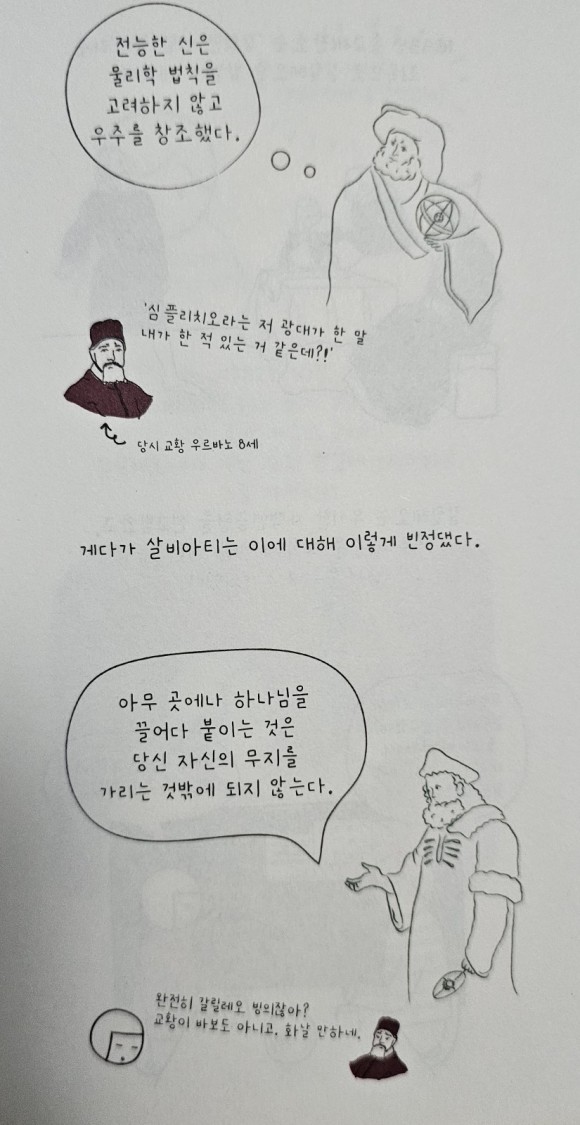 전능한 신은
물리학 법칙을
고려하지 않고
우주를 창조했다.
'심플리치오라는 저 광대가 한 말
내가 한 적 있는 거 같은데?!'
당시 교황 우르바노 8세
게다가 살비아티는 이에 대해 이렇게 빈정댔다.
아무 곳에나 하나님을
끌어다 붙이는 것은
당신 자신의 무지를
가리는 것밖에 되지 않는다.
완전히 갈릴레오 빙의잖아?
교황이 바보도 아니고. 화날 만하네.